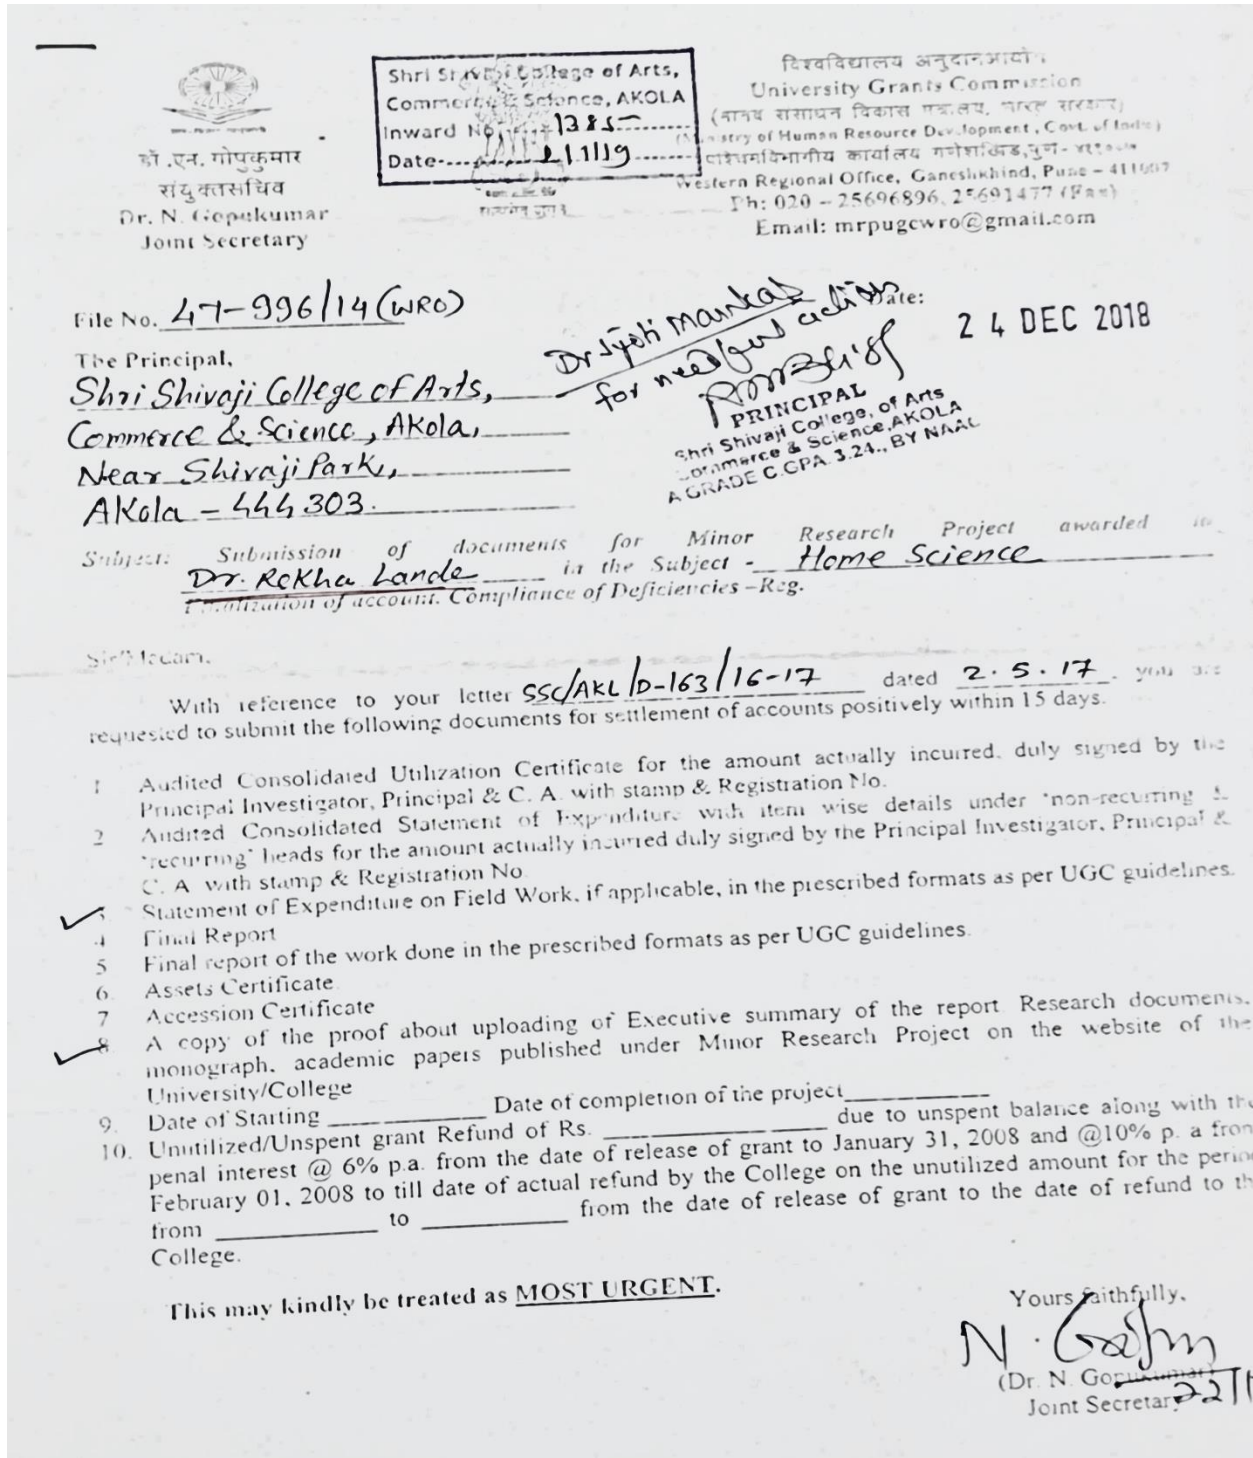 डॉ.एन. गोपुकुमार
संयुक्तसचिव
Dr. N. Gopukumar
Joint Secretary
Shri Shivaji College of Arts,
Commerce & Science, AKOLA
Inward No. 1385
Date 2/1/19
विश्वविद्यालय अनुदान आयोग
University Grants Commission
(मानव संसाधन विकास मंत्रालय, भारत सरकार)
(Ministry of Human Resource Development, Govt. of India)
पश्चिमविभागीय कार्यालय गणेशखिंड, पुणे-
Western Regional Office, Ganeshkhind, Pune – 411007
Ph: 020 – 25696896, 25691477 (Fax)
Email: mrpugcwro@gmail.com
File No. 47-996/14 (WRO)
Date:
24 DEC 2018
Dr Jyoti Mankar
for needful action
PRINCIPAL
Shri Shivaji College, of Arts
Commerce & Science, AKOLA
A GRADE C.GPA. 3.24., BY NAAC
The Principal,
Shri Shivaji College of Arts,
Commerce & Science, Akola,
Near Shivaji Park,
Akola – 444303.
Subject: Submission of documents for Minor Research Project awarded to
Dr. Rekha Lande in the Subject - Home Science
Finalization of account. Compliance of Deficiencies –Reg.
Sir/Madam,
With reference to your letter SSC/AKL/D-163/16-17 dated 2.5.17. you are
requested to submit the following documents for settlement of accounts positively within 15 days.
1 Audited Consolidated Utilization Certificate for the amount actually incurred, duly signed by the
Principal Investigator, Principal & C. A. with stamp & Registration No.
2 Audited Consolidated Statement of Expenditure with item wise details under 'non-recurring &
'recurring' heads for the amount actually incurred duly signed by the Principal Investigator, Principal &
C. A with stamp & Registration No
3. Statement of Expenditure on Field Work, if applicable, in the prescribed formats as per UGC guidelines.
4 Final Report
5 Final report of the work done in the prescribed formats as per UGC guidelines.
6. Assets Certificate
7 Accession Certificate
8. A copy of the proof about uploading of Executive summary of the report Research documents,
monograph, academic papers published under Minor Research Project on the website of the
University/College
9. Date of Starting __________ Date of completion of the project__________
10. Unutilized/Unspent grant Refund of Rs. __________ due to unspent balance along with the
penal interest @ 6% p.a. from the date of release of grant to January 31, 2008 and @10% p. a from
February 01, 2008 to till date of actual refund by the College on the unutilized amount for the period
from __________ to __________ from the date of release of grant to the date of refund to th
College.
This may kindly be treated as MOST URGENT.
Yours faithfully,
(Dr. N. Gopukumar)
Joint Secretary